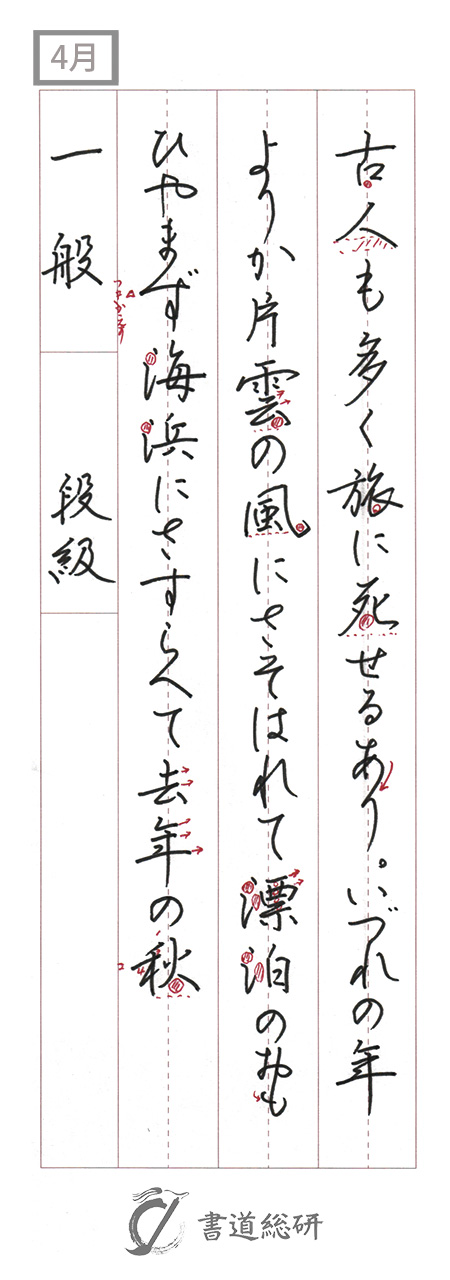 4月
古人も多く旅に死せるあり。いづれの年
よりか片雲の風にさそはれて漂泊のおも
ひやまず海浜にさすらへて去年の秋
一般
段級
書道総研